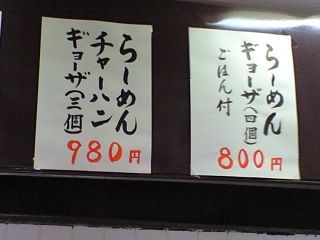 らーめん
チャーハン
ギョーザ(三個)
980円
らーめん
ギョーザ(四個)
ごはん付
800円